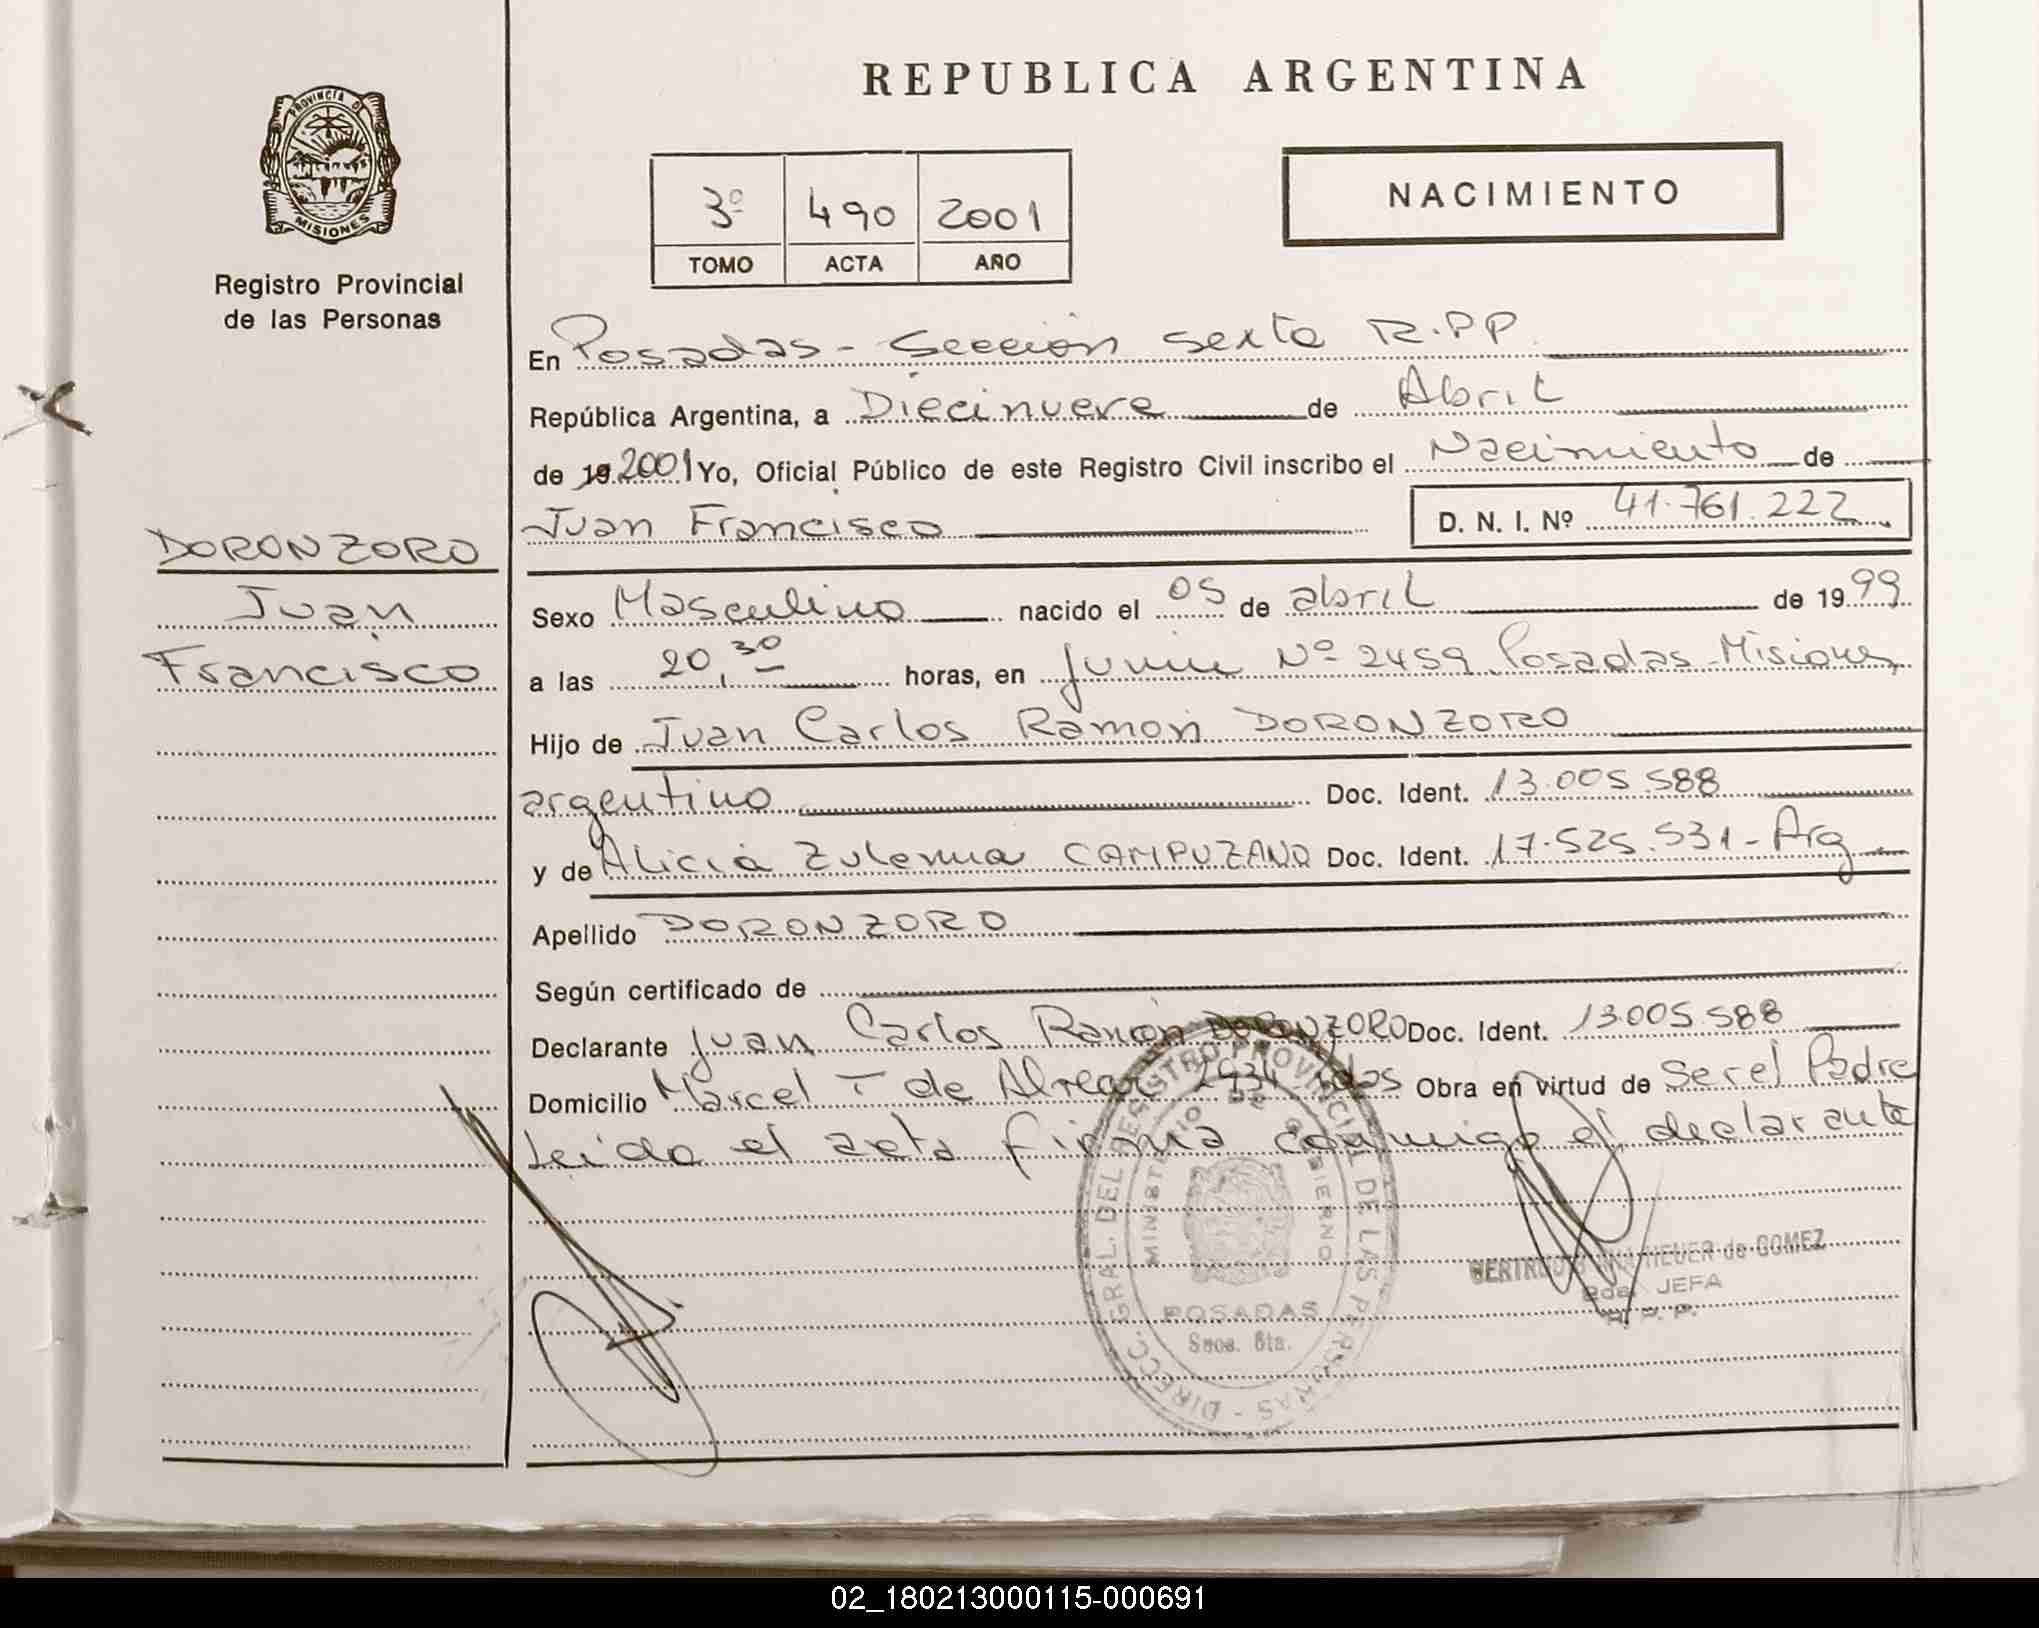 REPUBLICA ARGENTINA
PROVINCIA D
MISIONES
Registro Provincial
de las Personas
3º 490 2001
TOMO ACTA AÑO
NACIMIENTO
En Posadas - Sección Sexta R.P.P.
República Argentina, a Diecinueve de Abril
de 19 2001 Yo, Oficial Público de este Registro Civil inscribo el Nacimiento de
Juan Francisco D. N. I. Nº 41.761.222
DORONZORO
Juan
Francisco
Sexo Masculino nacido el 05 de abril de 1999
a las 20,30 horas, en Junin Nº 2459 Posadas - Misiones
Hijo de Juan Carlos Ramón DORONZORO
argentino Doc. Ident. 13.005.588
y de Alicia Zulema CAMPUZANO Doc. Ident. 17.525.531 - Arg
Apellido DORONZORO
Según certificado de
Declarante Juan Carlos Ramón DORONZORO Doc. Ident. 13.005.588
Domicilio Marcel T de Alvear 2434 Pdas Obra en virtud de Ser el Padre
Leida el acta firma conmigo el declarante
DIRECC. GRAL. DEL REGISTRO PROVINCIAL DE LAS PERSONAS -
MINISTERIO DE GOBIERNO
POSADAS
Secc. 6ta.
HEUER de GOMEZ
2da. JEFA
R. P. P.
02_180213000115-000691